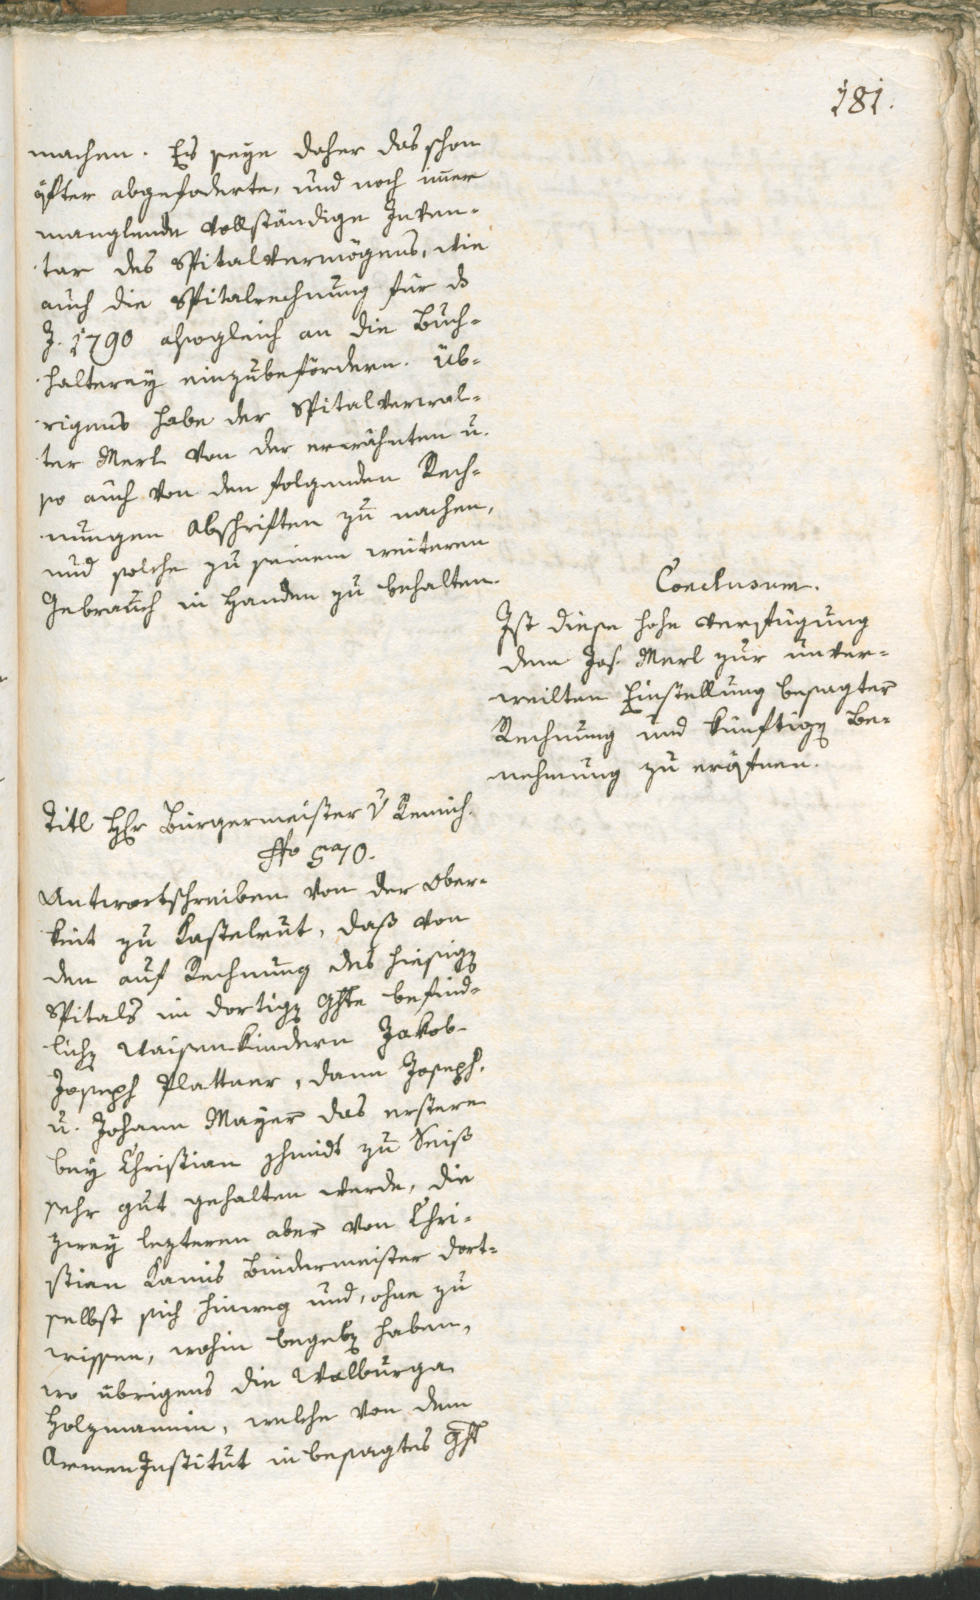 181.
machen. Es seye daher das schon
öfter abgefoderte, und noch im̄er
manglende vollständige Inven-
tar des Spitalvermögens, wie
auch die Spitalrechnung für d
J. 1790 alsogleich an die Buch-
halterey einzubefördern. Üb-
rigens habe der Spitalverwal-
ter Merl von der erwähnten u.
so auch von den folgenden Rech-
nungen Abschriften zu machen,
und solche zu seinem weiteren
Gebrauch in Handen zu behalten.
Conclusum.
Ist diese hohe Verfügung
dem Jos. Merl zur unver-
weilten Einstellung besagter
Rechnung und künftig Be-
nehmung zu eröfnen.
Titl Hr Bürgermeister v Remich.
No 570.
Antwortschreiben von der Ober-
keit zu Kastelrut, daß von
den auf Rechnung des hiesig
Spitals im dortig Ghte befind-
lich Waisenkindern Jakob
Joseph Plattner, dann Joseph,
u. Johann Mayer das erstere
bey Christian Schmidt zu Seiß
sehr gut gehalten werde, die
zwey lezteren aber von Chri-
stian Kanis Bindermeister dort-
selbst sich hinweg und, ohne zu
wissen, wohin begeb haben,
wo übrigens die Walburga
Holzmannin, welche von dem
Armen Institut in besagtes Ght